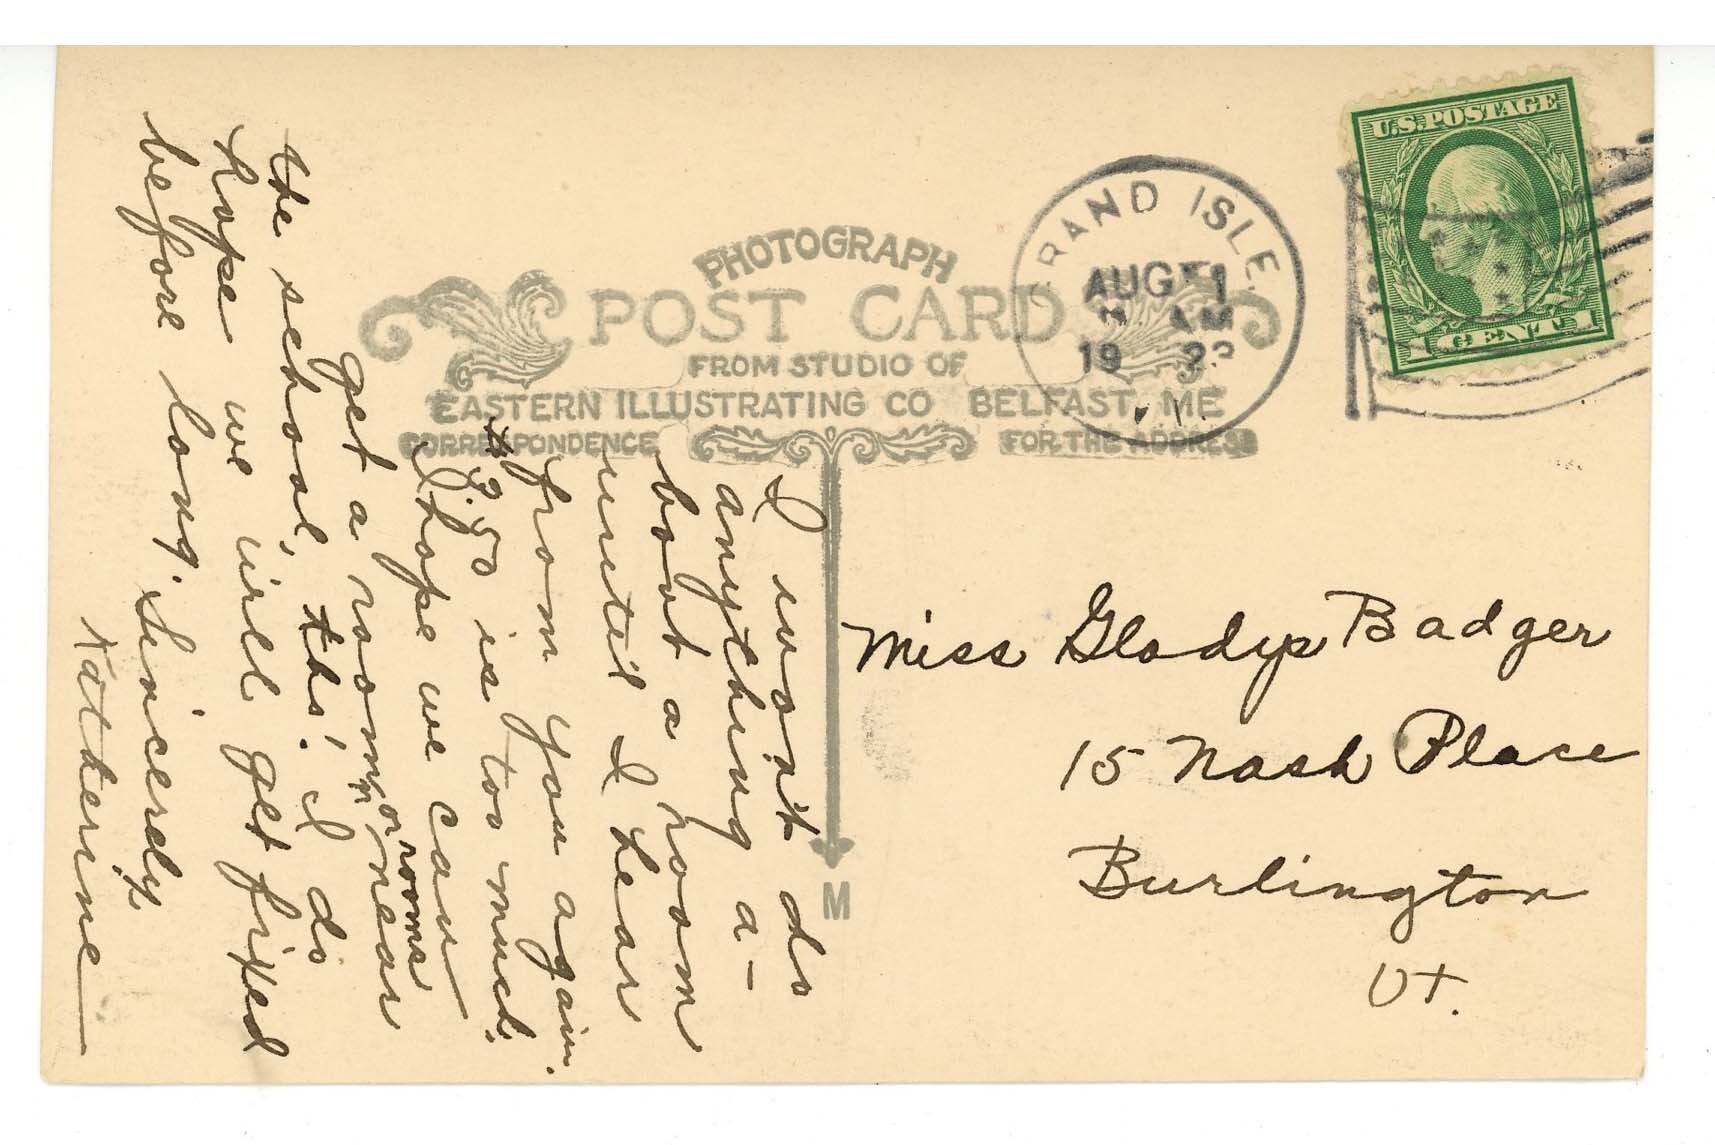 PHOTOGRAPH
POST CARD
FROM STUDIO OF
EASTERN ILLUSTRATING CO BELFAST, ME
CORRESPONDENCE
FOR THE ADDRESS
M
GRAND ISLE
AUG 1
AM
19 23
U.S. POSTAGE
1 CENT 1
I won't do
anything a-
bout a room
until I hear
from you again.
$3.50 is too much.
I hope we can
get a room, or rooms near
the school, tho'. I do
hope we will get fixed
before long. Sincerely,
Katherine
Miss Gladys Badger
15 Nash Place
Burlington
Vt.